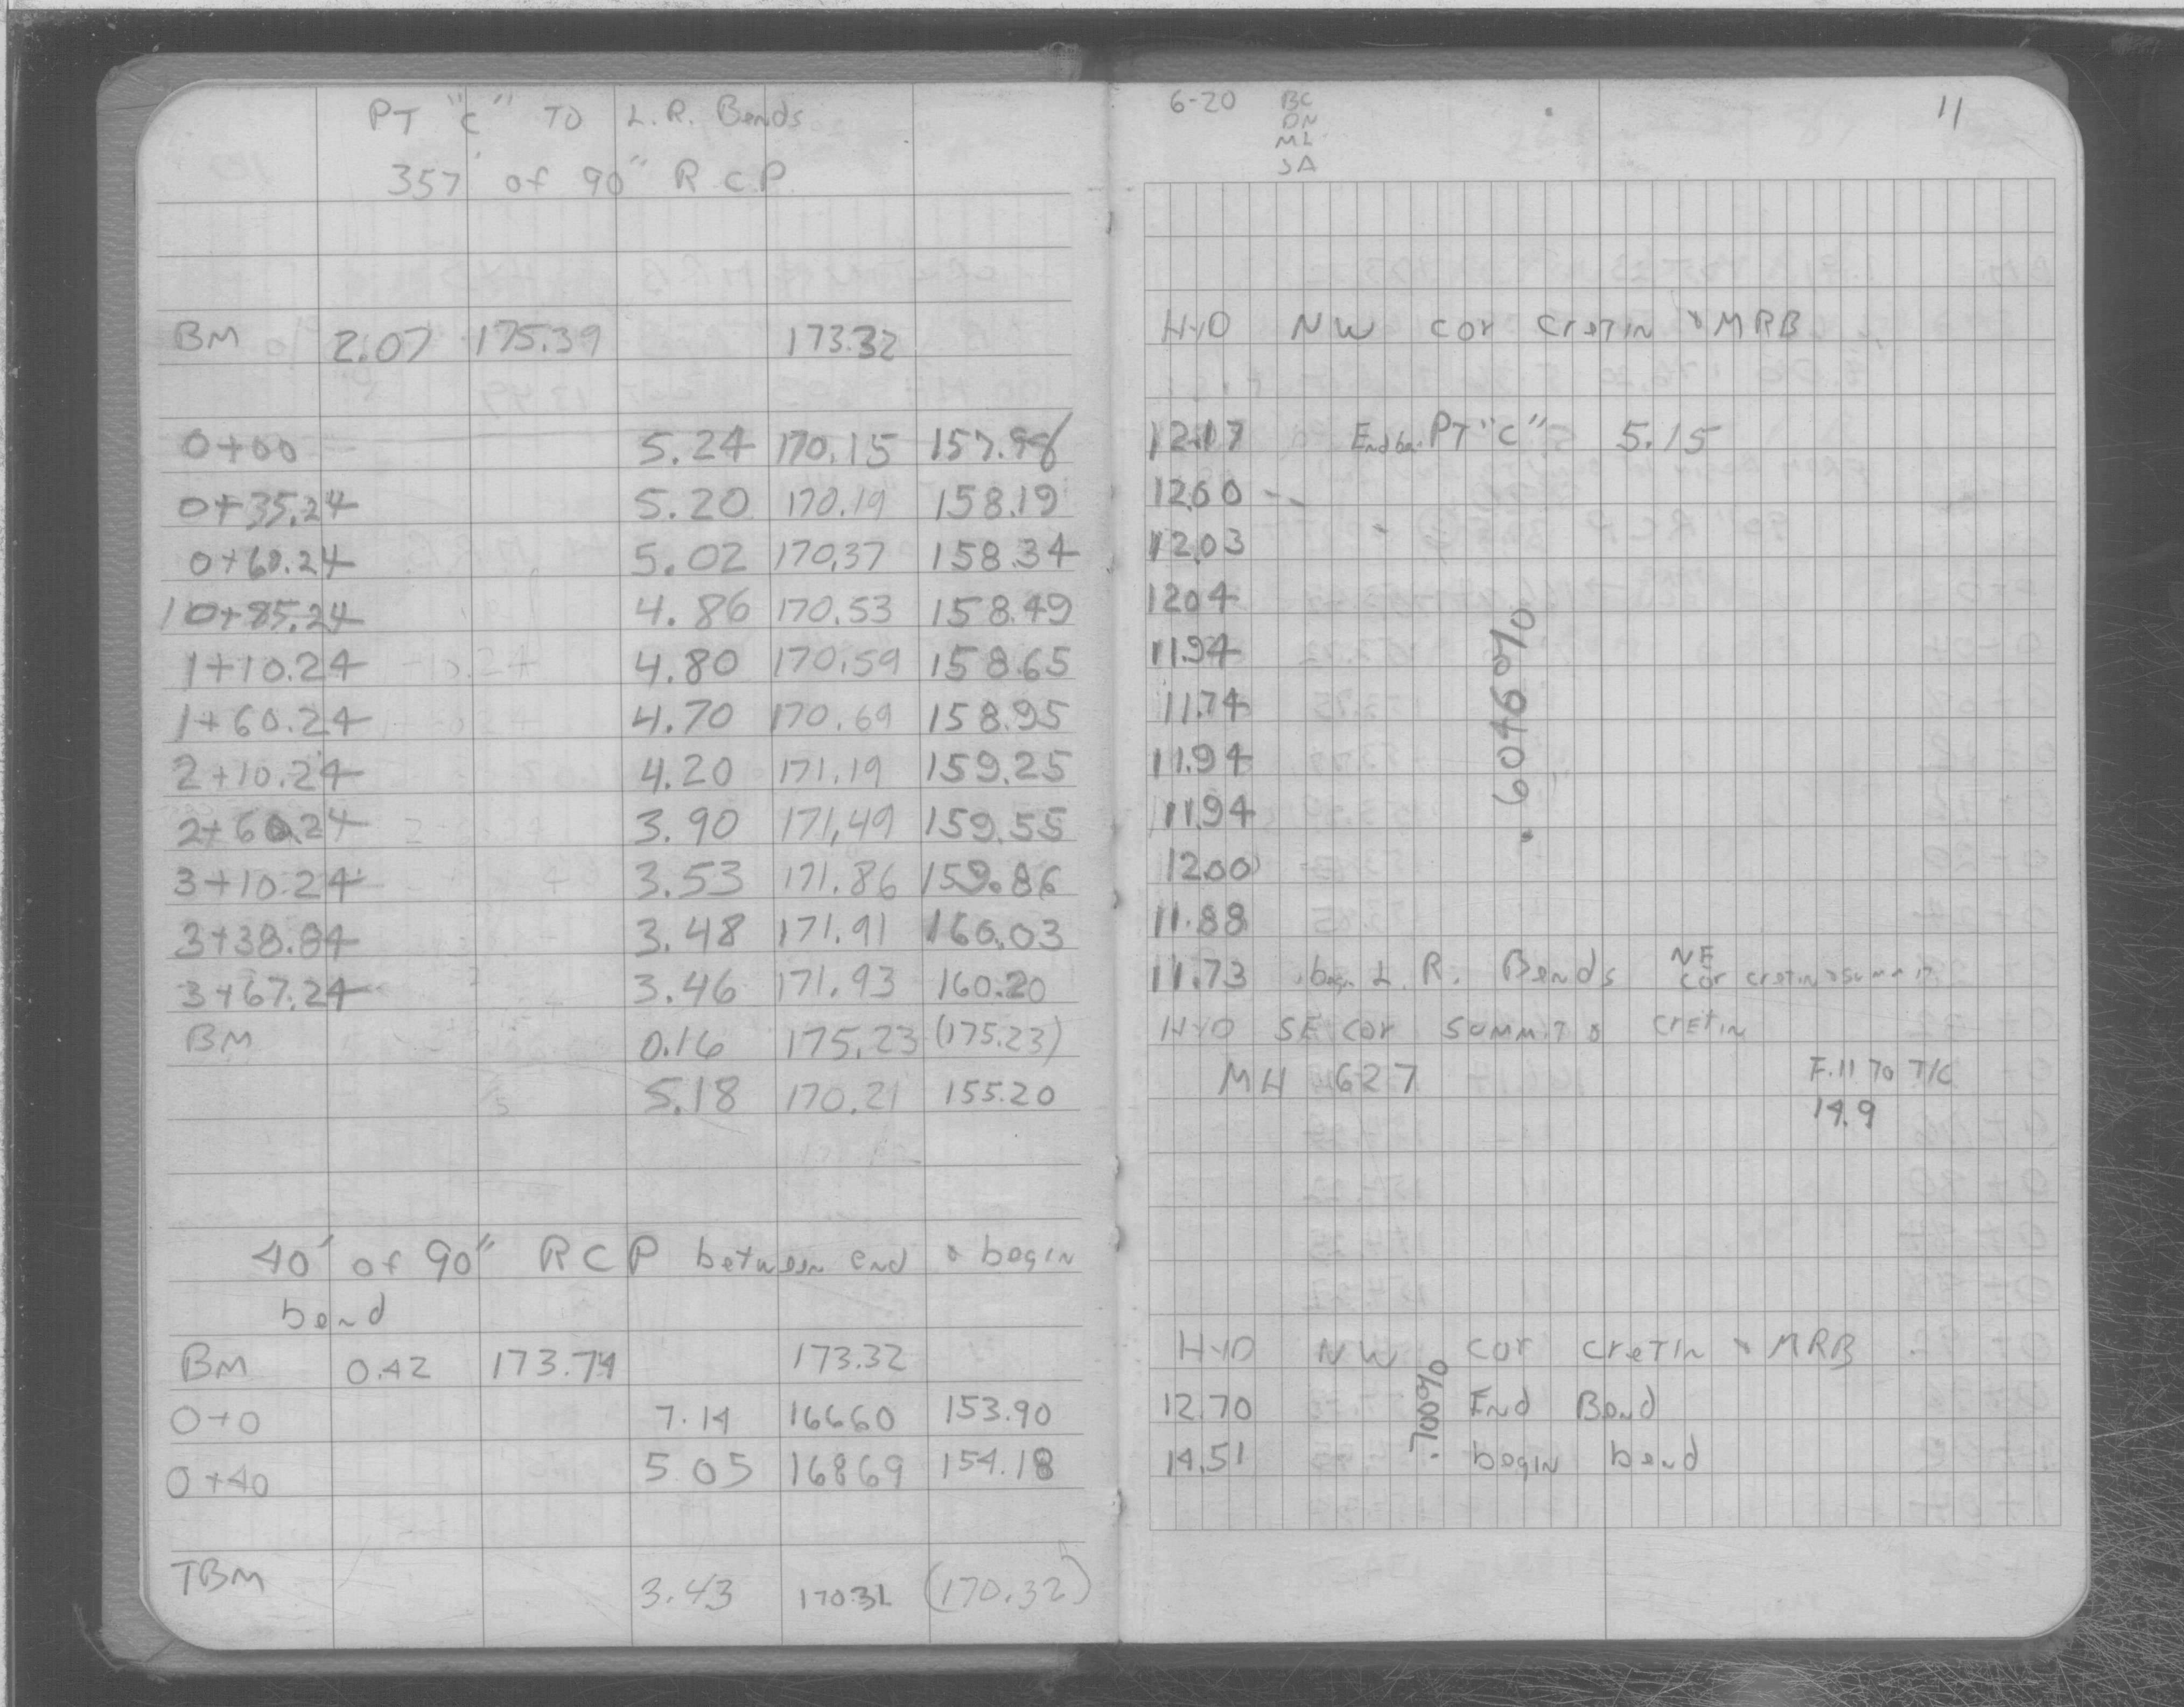 PT "C" TO L.R. Bends
357' of 90" RCP
BM 2.07 175.39 173.32
0+00 5.24 170.15 157.98
0+35.24 5.20 170.19 158.19
0+60.24 5.02 170.37 158.34
0+85.24 4.86 170.53 158.49
1+10.24 4.80 170.59 158.65
1+60.24 4.70 170.69 158.95
2+10.24 4.20 171.19 159.25
2+60.24 3.90 171.49 159.55
3+10.24 3.53 171.86 159.86
3+38.84 3.48 171.91 160.03
3+67.24 3.46 171.93 160.20
BM 0.16 175.23 (175.23)
5.18 170.21 155.20
40' of 90" RCP between end & begin
bend
BM 0.42 173.74 173.32
0+0 7.14 16660 153.90
0+40 5.05 16869 154.18
TBM 3.43 170.31 (170.32)
6-20 BC 11
DN
ML
SA
HYD NW cor Cretin & MRB
12.17 PT "C" 5.15
12.00
12.03
1204
11.94
11.74
11.94
11.94
12.00
11.88
.6046%
11.73 begin L.R. Bends NE cor cretin & summit
HYD SE cor summit & cretin
MH 627 F.11 70 T/C
14.9
HYD NW cor cretin & MRB
12.70 End Bend
14.51 begin bend
.700%